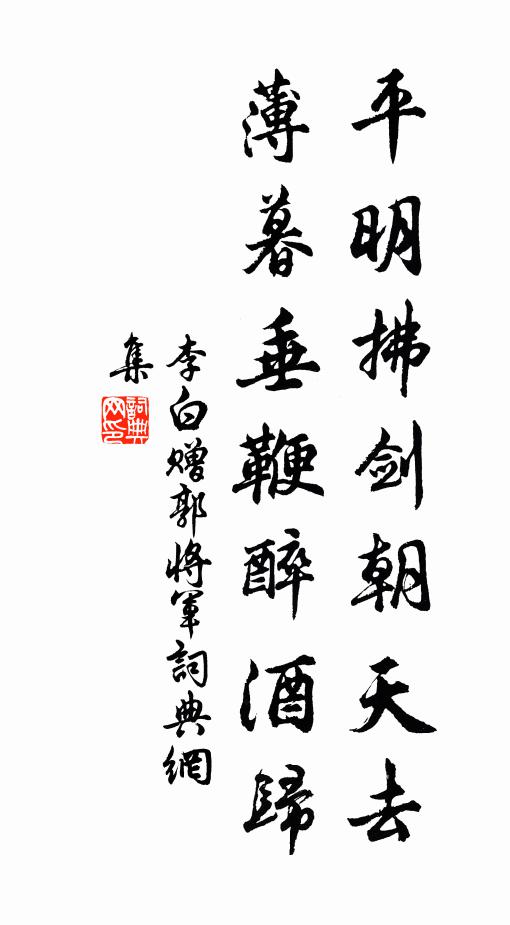 平明拂剑朝天去
薄暮垂鞭醉酒歸
李白赠郭将軍詞典網
集
詞典网印